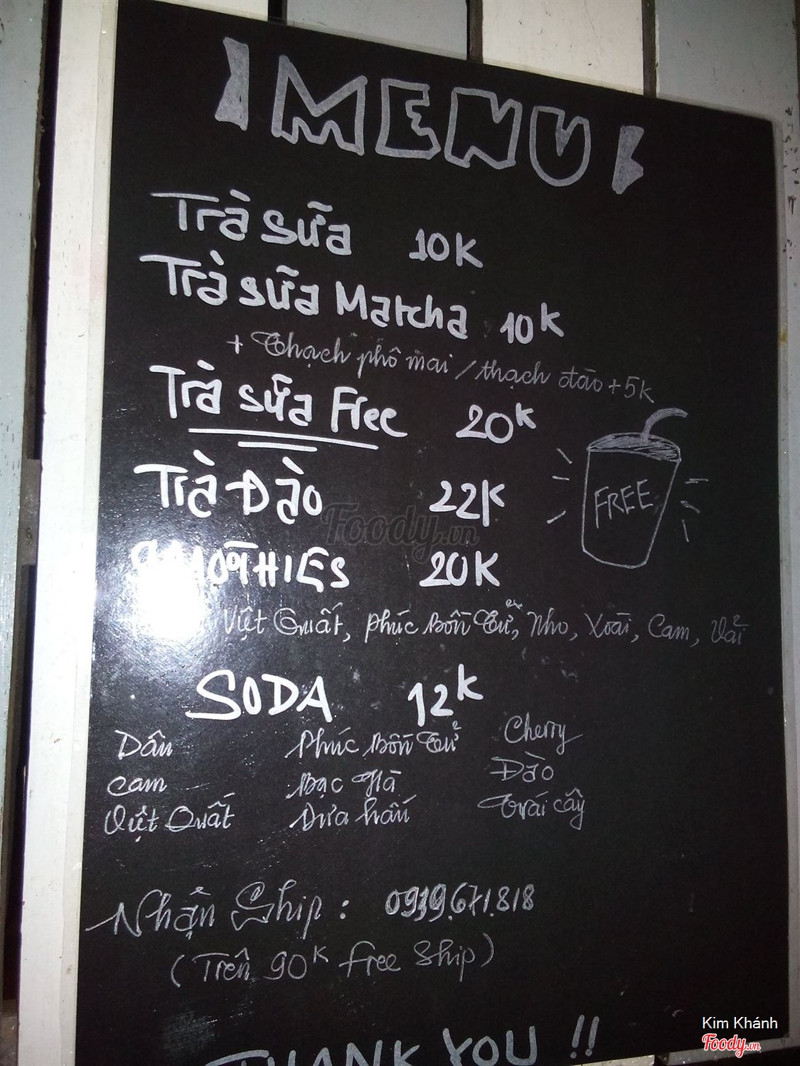 MENU
Trà sữa 10K
Trà sữa Matcha 10K
+ Thạch phô mai / thạch đào + 5K
Trà sữa Free 20K
Trà Đào 22K
FREE
SMOOTHIES 20K
Việt Quất, Phúc Bồn Tử, Nho, Xoài, Cam, Vải
SODA 12K
Dâu Phúc Bồn Tử Cherry
Cam Bạc Hà Đào
Việt Quất Dưa hấu Trái cây
Nhận Ship : 0939.671.818
(Trên 90K free ship)
THANK YOU !!
Foody.vn
Kim Khánh
Foody.vn